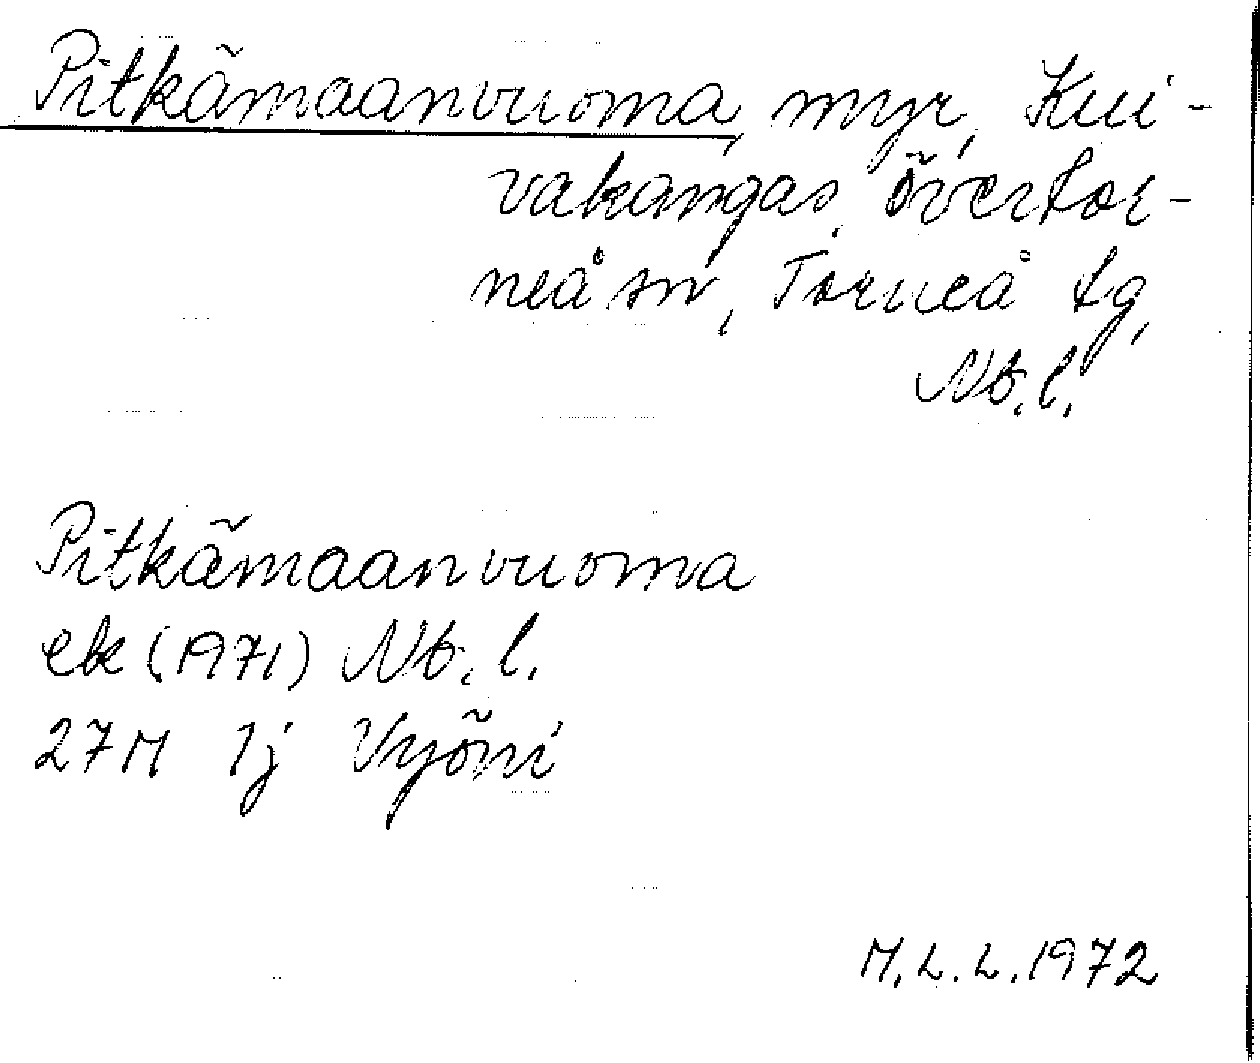 Pitkämaanvuoma, myr, Kui-
vakangas, Övertor-
neå sn, Torneå tg,
Nb. l.
Pitkämaanvuoma
ek (1971) Nb. l.
27M 1j Vyöni
M.L.L. 1972